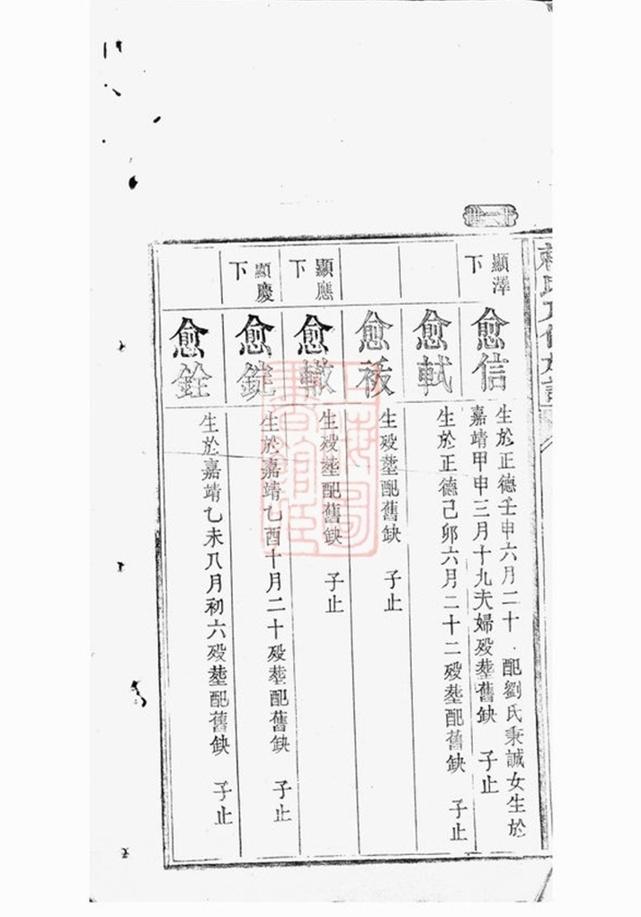 顯澤下
愈信
生於正德壬申六月二十 配劉氏秉誠女生於
嘉靖甲申三月十九夫婦殁塟舊缺 子止
愈軾
生於正德己卯六月二十二殁塟配舊缺 子止
愈
生殁塟配舊缺 子止
顯應下
愈轍
生殁塟配舊缺 子止
顯慶下
愈錠
生於嘉靖乙酉十月二十殁塟配舊缺 子止
愈銓
生於嘉靖乙未八月初六殁塟配舊缺 子止